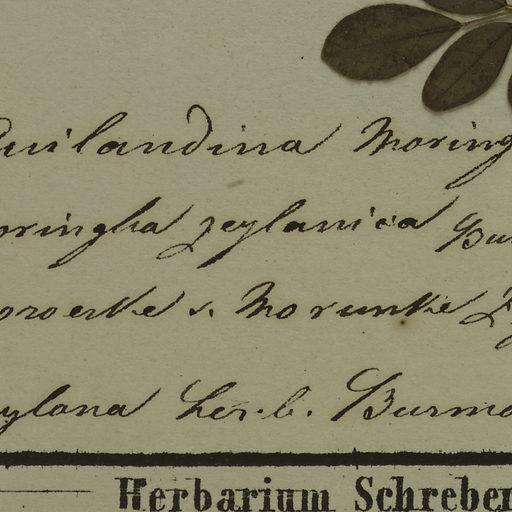 uilandina Moring
oringha zeylanica Bur
s. Morunke
ylana herb. Burma
Herbarium Schreber